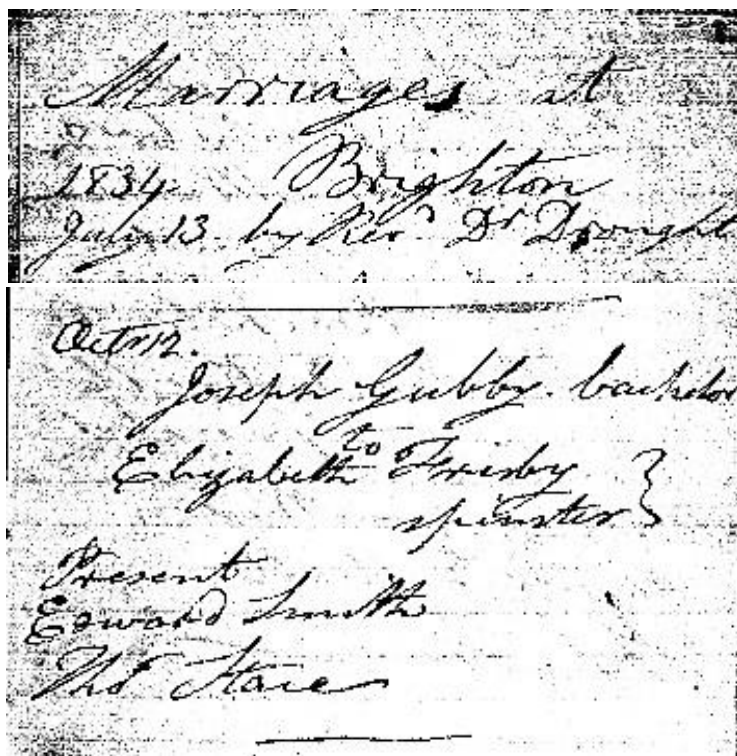 Marriages at
1834 Brighton
July 13 by Revd Dr Drought
Octr 12.
Joseph Gubby bachelor
to
Elizabeth Frisby
spinster }
Present
Edward Smith
Thos Stace